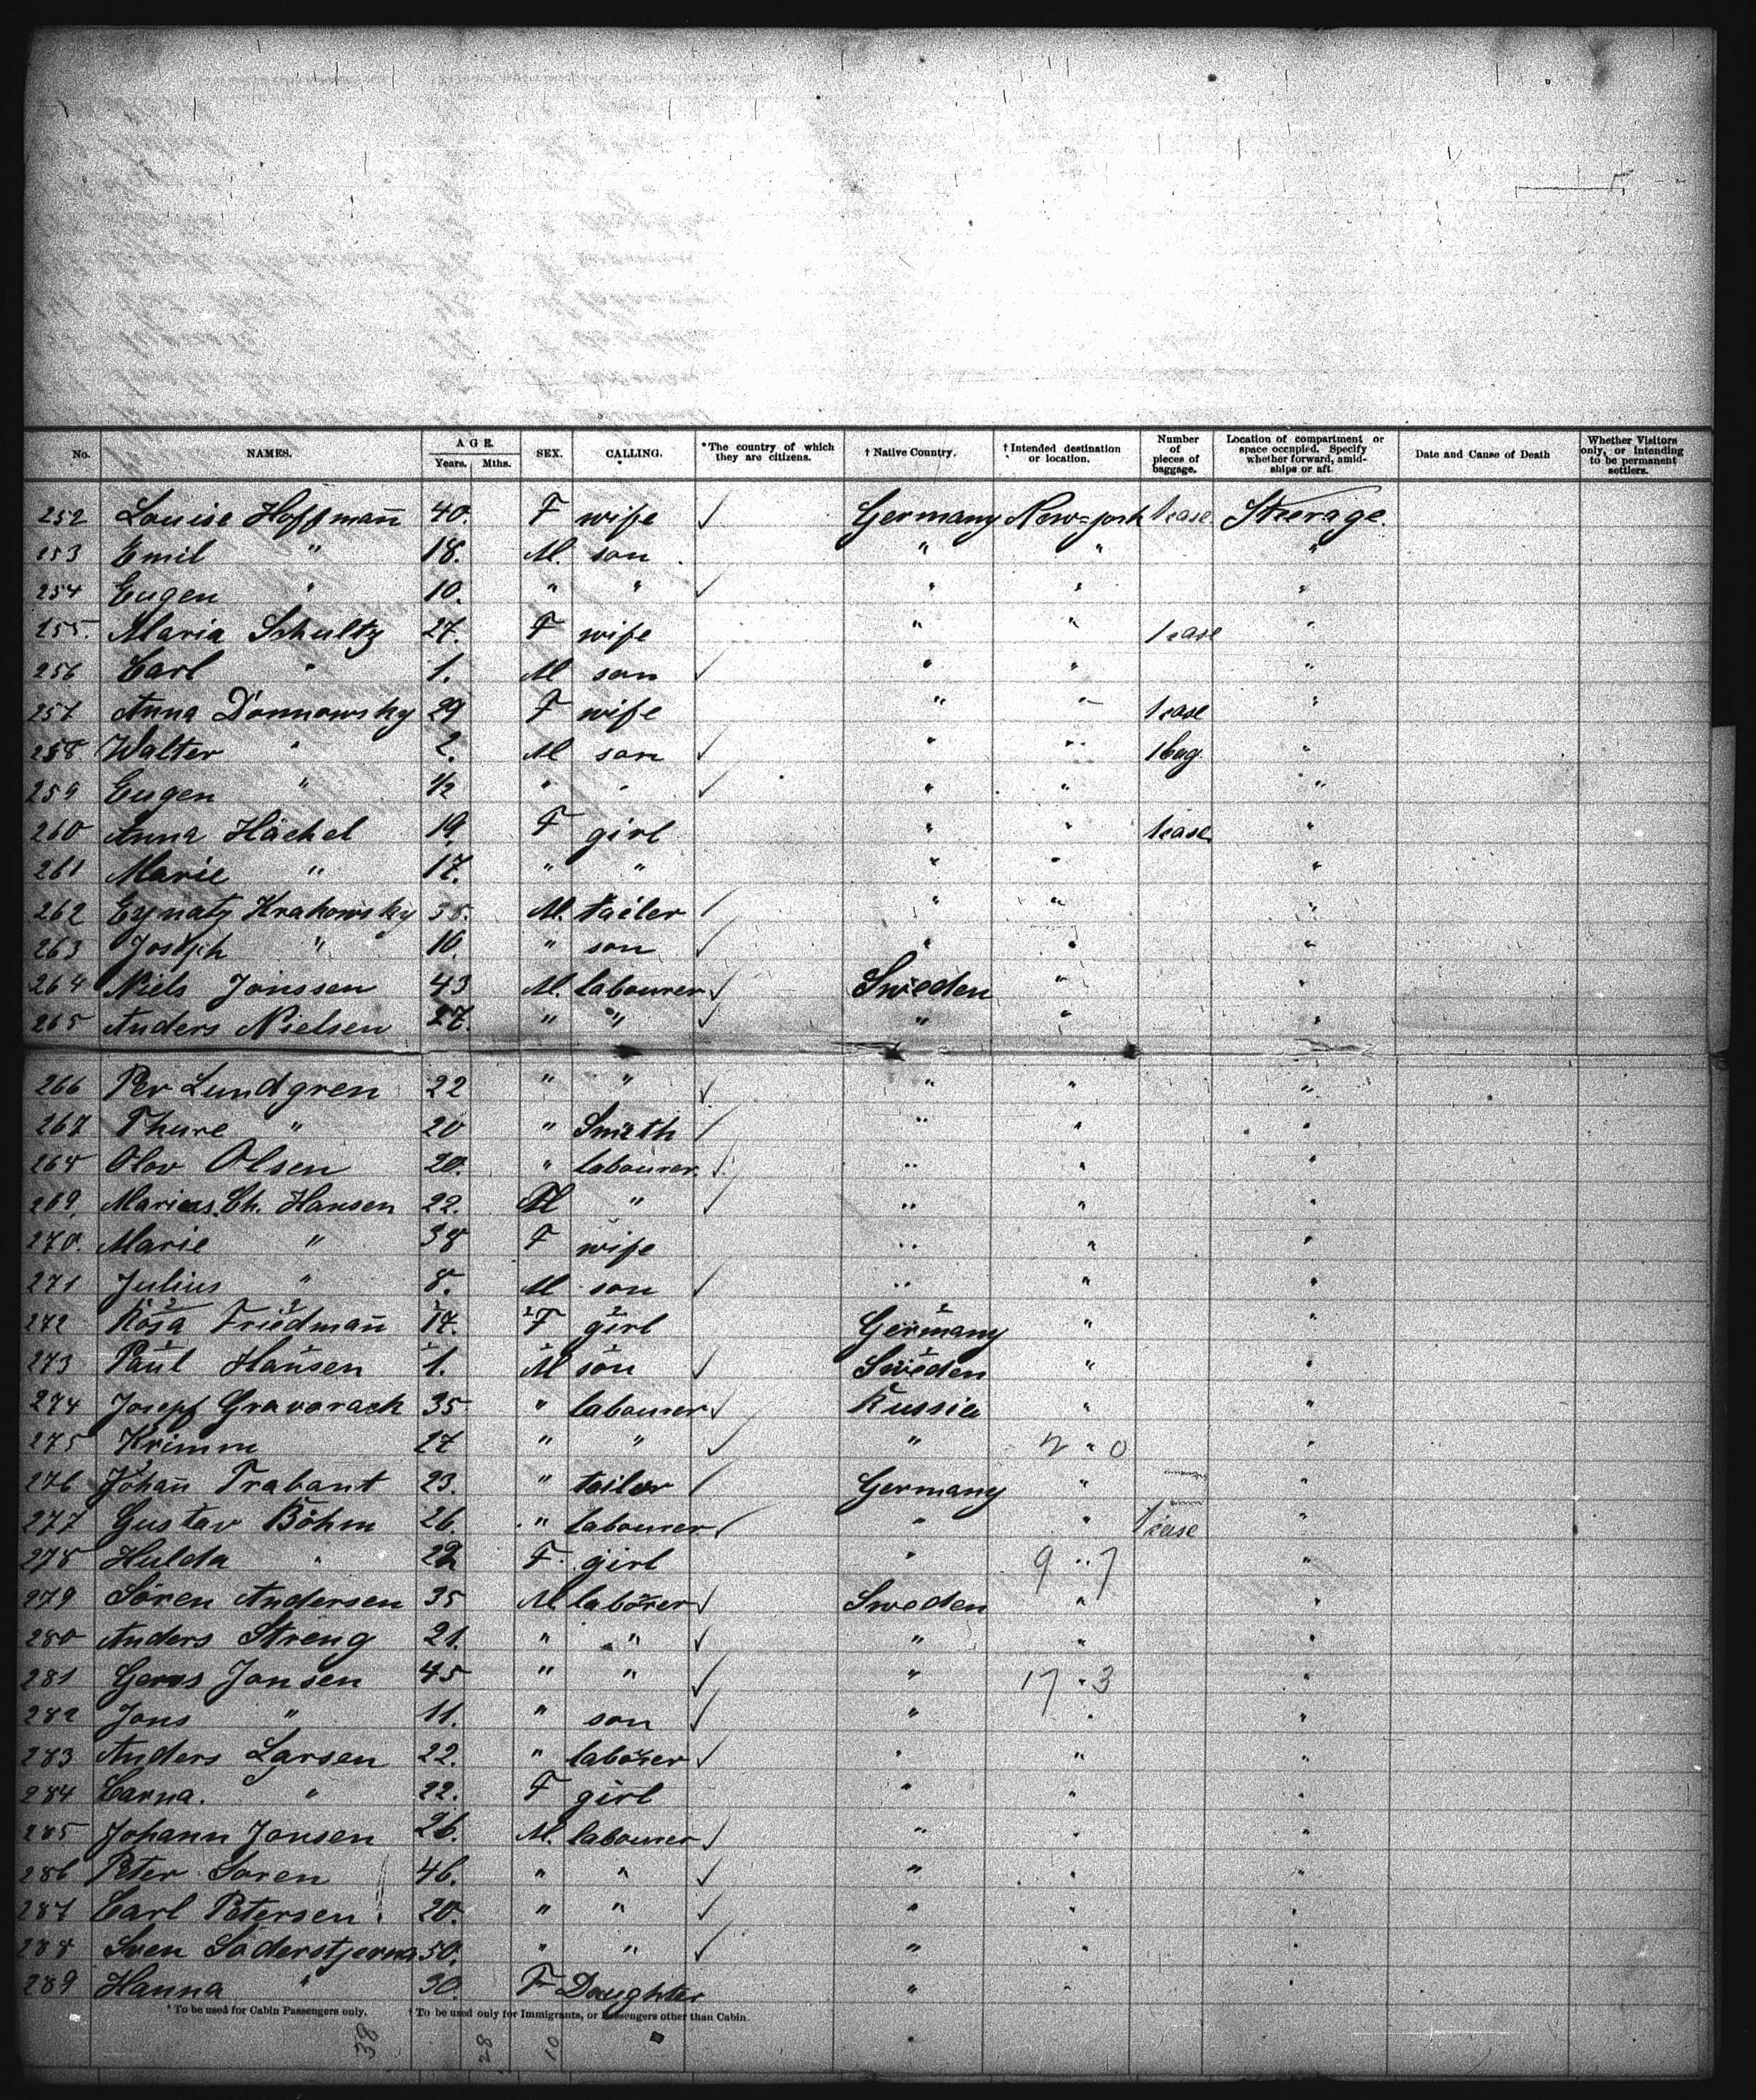 No. NAMES. AGE. Years. Mths. SEX. CALLING. *The country of which they are citizens. † Native Country. † Intended destination or location. Number of pieces of baggage. Location of compartment or space occupied. Specify whether forward, amidships or aft. Date and Cause of Death Whether Visitors only, or intending to be permanent settlers.
252 Louise Hoffmann 40. F wife ✓ Germany New=york 1 case Steerage.
253 Emil " 18. M. son " " "
254 Eugen " 10. " " ✓ " " "
255. Maria Schultz 27. F wife " " 1 case "
256 Carl " 1. M son ✓ " " "
257 Anna Donnowsky 29 F wife " " 1 case "
258 Walter " 2. M son ✓ " " 1 bag. "
259 Eugen " ½ " " ✓ " " "
260 Anna Häckel 19. F girl " " 1 case "
261 Marie " 17. " " " " "
262 Eynatz Krakowsky 38. M. tailer ✓ " " "
263 Joseph " 16. " son ✓ " " "
264 Niels Jonssen 43 M. labourer ✓ Sweden " "
265 Anders Nielsen 27. " " ✓ " " "
266 Per Lundgren 22 " " ✓ " " "
267 Thure " 20 " Smith ✓ " " "
268 Olov Olsen 20. " labourer. ✓ " " "
269. Marius. Ch. Hansen 22. M " ✓ " " "
270. Marie " 38 F wife " " "
271 Julius " 8. M son ✓ " " "
272 Rosa Friedmann 17. F girl Germany " "
273 Paul Hansen 1. M son ✓ Sweden " "
274 Josepf Gravarack 35 " labourer ✓ Russia " "
275 Krimm 27 " " ✓ " " "
276 Johann Trabant 23. " tailor ✓ Germany " "
277 Gustav Böhm 26. " labourer ✓ " " 1 case "
278 Hulda " 22 F girl " 9 " 7 "
279 Sören Andersen 35 M laborer ✓ Sweden " "
280 Anders Streng 21. " " ✓ " " "
281 Jonsen 45 " " ✓ " 17 " 3 "
282 Jons " 11. " son ✓ " " "
283 Anders Larsen 22. " laborer ✓ " " "
284 Carna. " 22. F girl " " "
285 Johann Jonsen 26. M. labourer ✓ " " "
286 Peter Soren 46. " " ✓ " " "
287 Carl Petersen 20. " " ✓ " " "
288 Sven Soderstjerna 50. " " ✓ " " "
289 Hanna " 30. F Daughter " " "
* To be used for Cabin Passengers only. † To be used only for Immigrants, or Passengers other than Cabin.
38 28 10